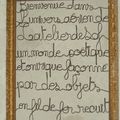 Bienvenue dans
l'univers aérien de
l'atelier de sof
un monde poétique
et onirique façonné
par des objets
en fil de fer recuit